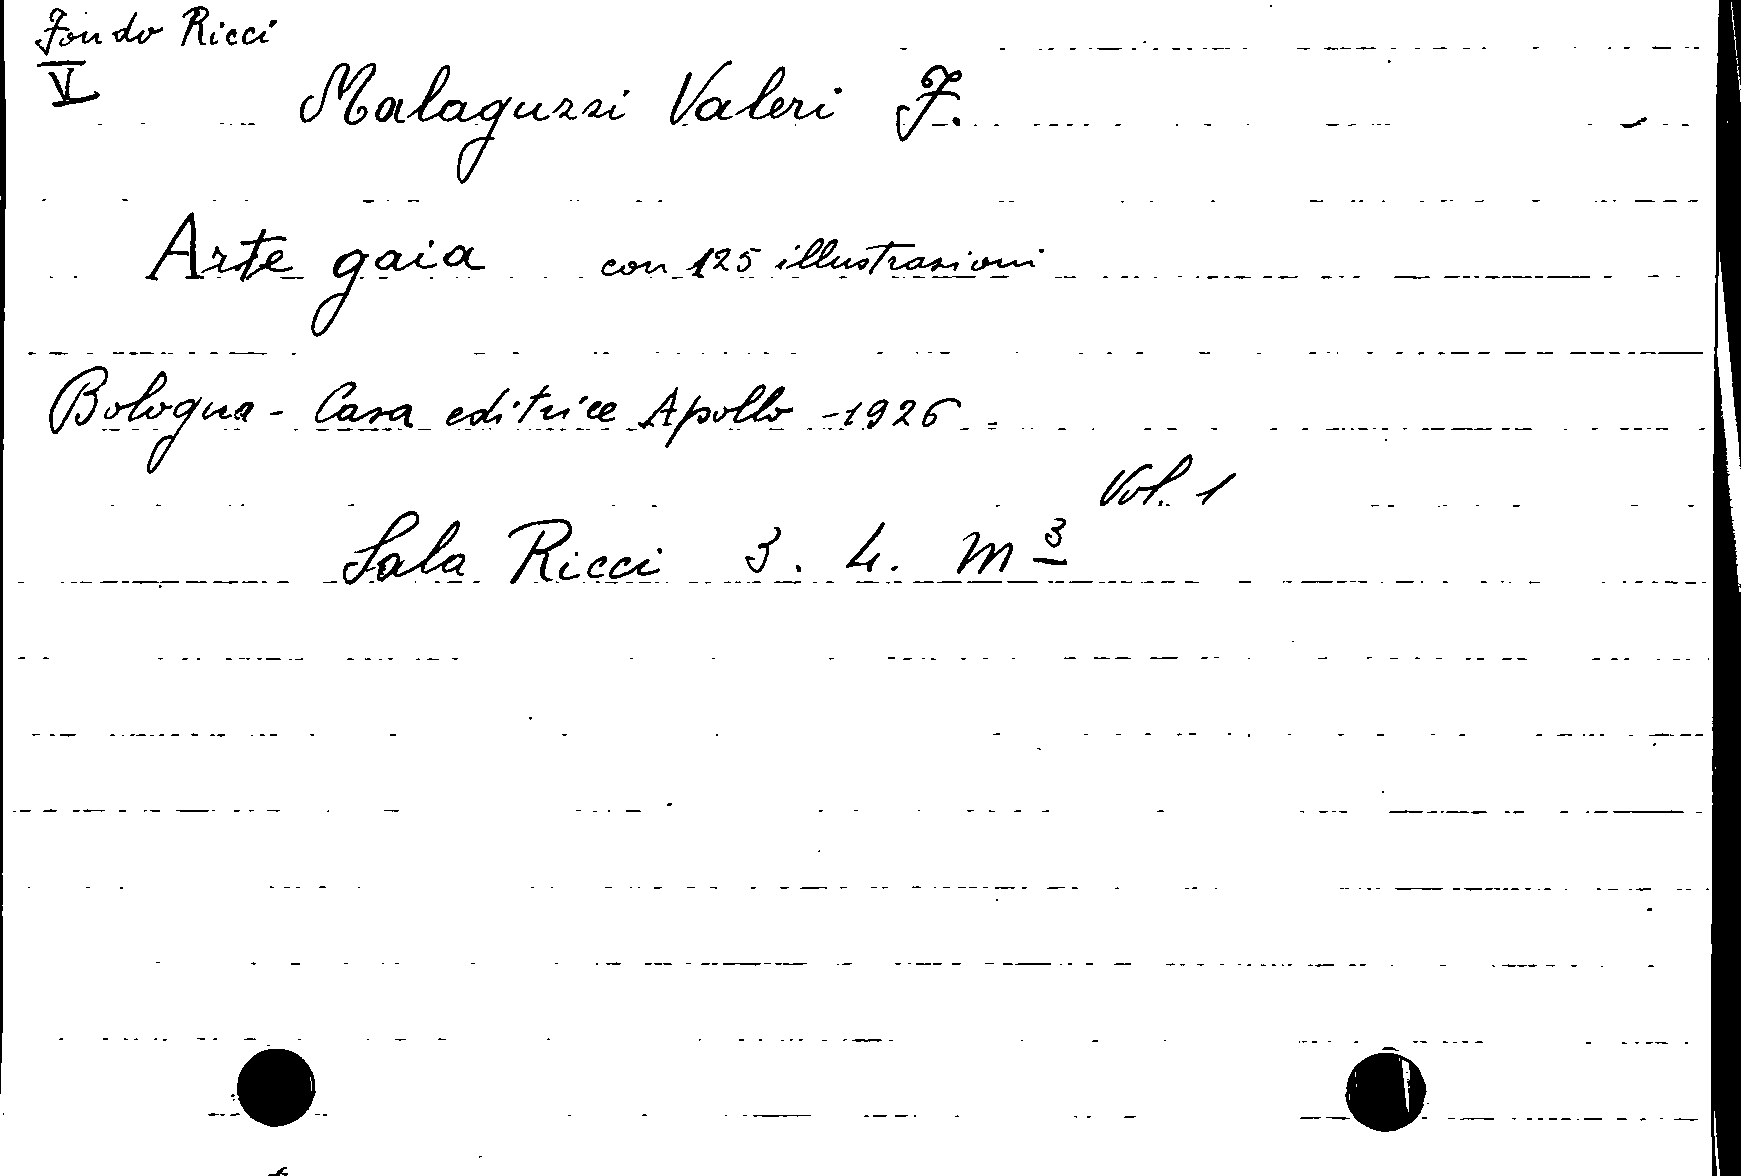 Fondo Ricci
V
Malaguzzi Valeri F.
Arte gaia con 125 illustrazioni
Bologna - Casa editrice Apollo - 1926
Vol. 1
Sala Ricci 3. 4. m 3